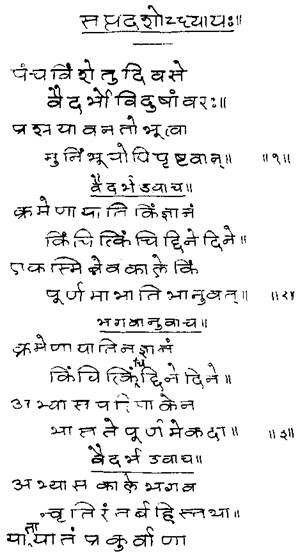 सप्तदशोध्यायः॥
पंचविंशे तु दिवसे
वैदर्भो विदुषां वरः॥
प्रश्रयावनतो भूत्वा
मुनिं भूयोपि पृष्टवान्॥ ॥१॥
वैदर्भ उवाच॥
क्रमेणायाति किं ज्ञानं
किंचित्किंचिद्दिने दिने॥
एकस्मिन्नेव काले किं
पूर्णमाभाति भानुवत्॥ ॥२॥
भगवानुवाच॥
क्रमेणायाति न ज्ञानं
किंचित्किंचिद्दिने दिने॥
अभ्यासपरिपाकेन
भासते पूर्णमेकदा॥ ॥३॥
वैदर्भ उवाच॥
अभ्यासकाले भगव
न्वृतिरंतर्बहिस्तथा॥
यातायातं प्रकुर्वाणा